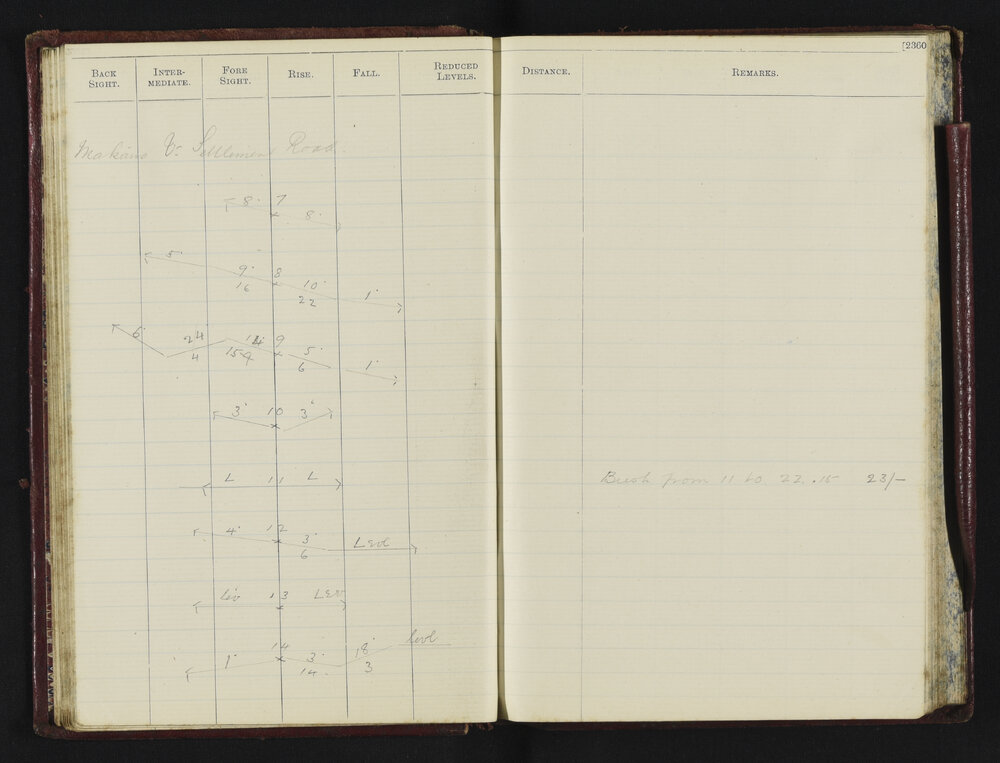 [2360
BACK SIGHT. INTER-MEDIATE. FORE SIGHT. RISE. FALL. REDUCED LEVELS. DISTANCE. REMARKS.
Settlement Road.
8° 7 8°
5° 9° 8 10° 1°
16 22
6° 24 14 9 5° 1°
4 15 4 6
3° 10 3°
L 11 L
Bush from 11 to 22.15 23/-
4° 12 3° Levl
6
Lev 13 Lev
14 levl
1° 3° 18°
14 3